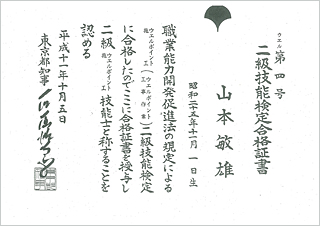 ウエル第四号
二級技能検定合格証書
山本敏雄
昭和二十五年十一月一日生
職業能力開発促進法の規定による
ウエルポイント施工(ウエルポイント工事作業)二級技能検定
に合格したのでここに合格証書を授与し
二級ウエルポイント施工技能士と称することを
認める
平成十一年十月五日
東京都知事